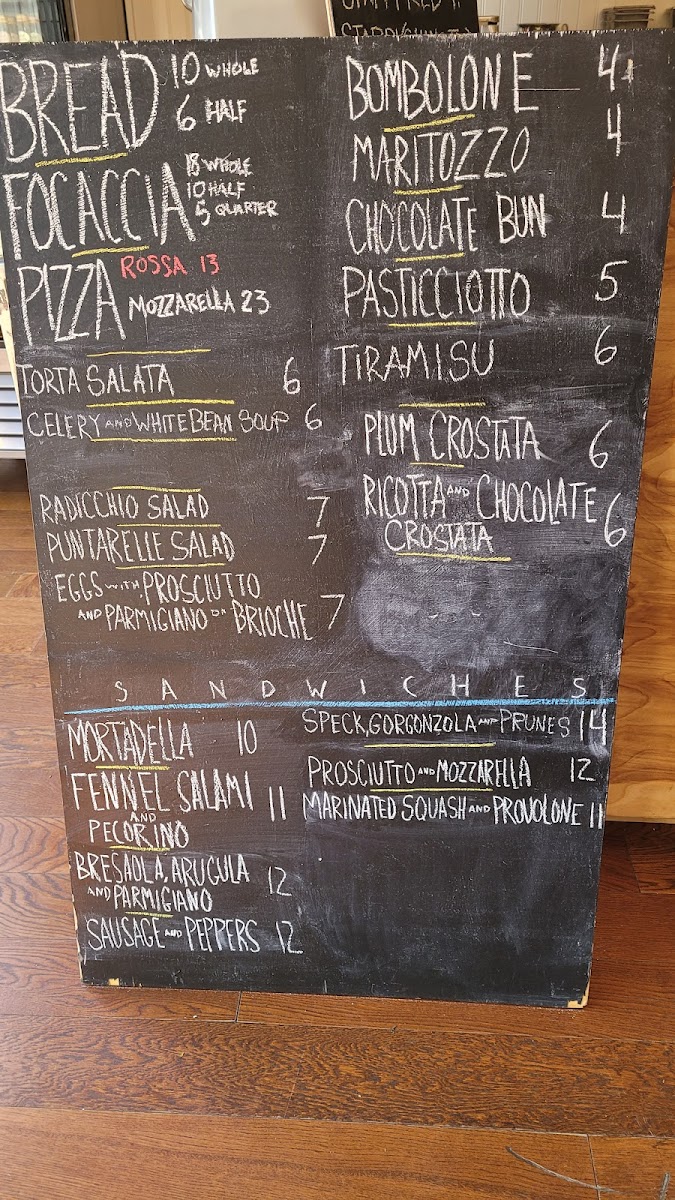 BREAD 10 WHOLE
6 HALF
FOCACCIA 18 WHOLE
10 HALF
5 QUARTER
PIZZA ROSSA 13
MOZZARELLA 23
TORTA SALATA 6
CELERY AND WHITE BEAN SOUP 6
RADICCHIO SALAD 7
PUNTARELLE SALAD 7
EGGS WITH PROSCIUTTO
AND PARMIGIANO ON BRIOCHE 7
BOMBOLONE 4
MARITOZZO 4
CHOCOLATE BUN 4
PASTICCIOTTO 5
TIRAMISU 6
PLUM CROSTATA 6
RICOTTA AND CHOCOLATE
CROSTATA 6
SANDWICHES
MORTADELLA 10
FENNEL SALAMI
AND
PECORINO 11
BRESAOLA, ARUGULA
AND PARMIGIANO 12
SAUSAGE AND PEPPERS 12
SPECK, GORGONZOLA AND PRUNES 14
PROSCIUTTO AND MOZZARELLA 12
MARINATED SQUASH AND PROVOLONE 11